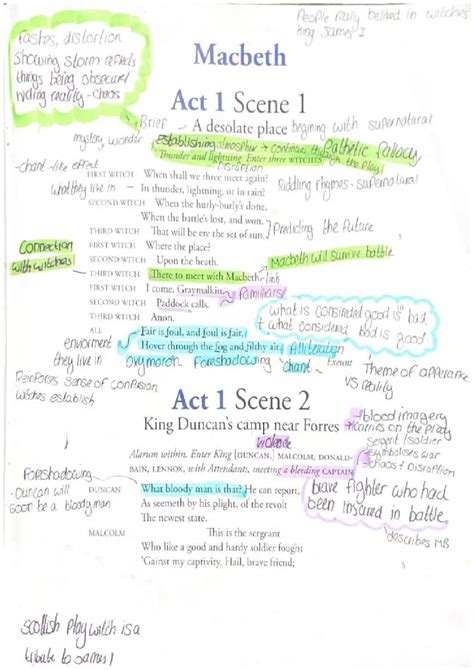 People really belived in witches
King James I
flashes, distortion
Showing storm reflects
things being obscure/
hiding reality - chaos
Macbeth
Act 1 Scene 1
Brief
A desolate place
begining with supernatural
mystery, wonder
establishing atmosphere → continues through the play
Pathetic fallacy
Thunder and lightning. Enter three WITCHES
Distortion
-chant-like effect
FIRST WITCH When shall we three meet again?
what they live in - In thunder, lightning, or in rain?
Riddling rhymes - supernatural
SECOND WITCH When the hurly-burly's done,
When the battle's lost, and won.
THIRD WITCH That will be ere the set of sun.
Predicting the future
FIRST WITCH Where the place?
Connection
with witches
SECOND WITCH Upon the heath.
Macbeth will survive battle
THIRD WITCH There to meet with Macbeth. link
FIRST WITCH I come, Graymalkin.
Familiars
SECOND WITCH Paddock calls.
THIRD WITCH Anon.
what is considered good is bad
+ what considered bad is good
ALL Fair is foul, and foul is fair,
enviroment
Hover through the fog and filthy air.
Alliteration
they live in
oxymoron
Foreshadowing
chant
Exeunt
Theme of apperance
vs reality
Reinforces sense of confusion
witches establish
Act 1 Scene 2
King Duncan's camp near Forres
-blood imagery
→carries on the play
violence
sergent/soldier
Alarum within. Enter King [DUNCAN,] MALCOLM, DONALD-
symbolises war
BAIN, LENNOX, with Attendants, meeting a bleeding CAPTAIN
-chaos + disruption
Foreshadowing
-Duncan will
soon be a bloody man
DUNCAN What bloody man is that? He can report,
As seemeth by his plight, of the revolt
The newest state.
brave fighter who had
been insured in battle
MALCOLM This is the sergeant
Who like a good and hardy soldier fought
describes MB
'Gainst my captivity. Hail, brave friend;
5
scottish play witch is a
tribute to James I